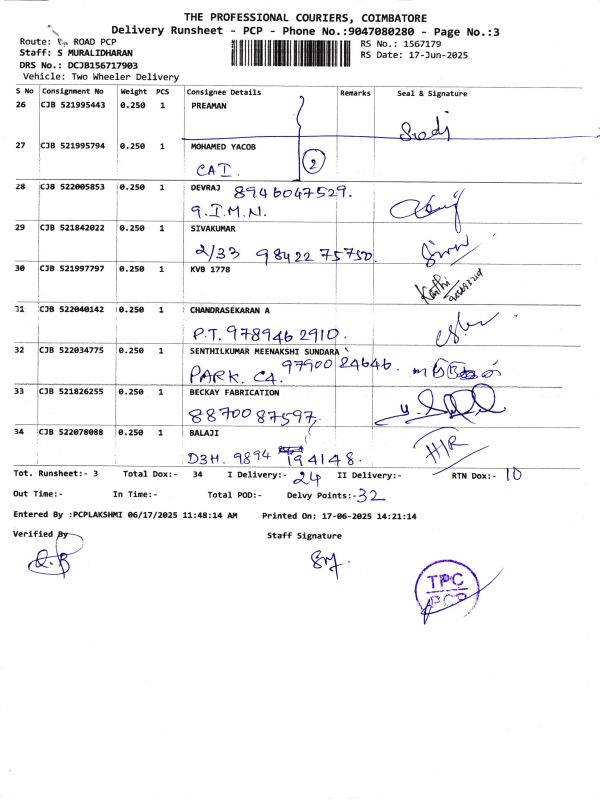 THE PROFESSIONAL COURIERS, COIMBATORE
Delivery Runsheet - PCP - Phone No.:9047080280 - Page No.:3
Route: ROAD PCP
RS No.: 1567179
Staff: S MURALIDHARAN
RS Date: 17-Jun-2025
DRS No.: DCJB156717903
Vehicle: Two Wheeler Delivery
S No Consignment No Weight PCS Consignee Details Remarks Seal & Signature
26 CJB 521995443 0.250 1 PREAMAN
27 CJB 521995794 0.250 1 MOHAMED YACOB
CAI. 2
28 CJB 522005853 0.250 1 DEVRAJ 8946047529.
9.I.M.N.
29 CJB 521842022 0.250 1 SIVAKUMAR
2/33 98422 75750.
30 CJB 521997797 0.250 1 KVB 1778
31 CJB 522040142 0.250 1 CHANDRASEKARAN A
P.T. 978946 2910.
32 CJB 522034775 0.250 1 SENTHILKUMAR MEENAKSHI SUNDARA
97900 24646.
PARK. C4.
33 CJB 521826255 0.250 1 BECKAY FABRICATION
88700 87597.
34 CJB 522078088 0.250 1 BALAJI
D3H. 9894 194148. HIR
Tot. Runsheet:- 3 Total Dox:- 34 I Delivery:- 24 II Delivery:- RTN Dox:- 10
Out Time:- In Time:- Total POD:- Delvy Points:- 32
Entered By :PCPLAKSHMI 06/17/2025 11:48:14 AM Printed On: 17-06-2025 14:21:14
Verified By Staff Signature
TPC
PCP